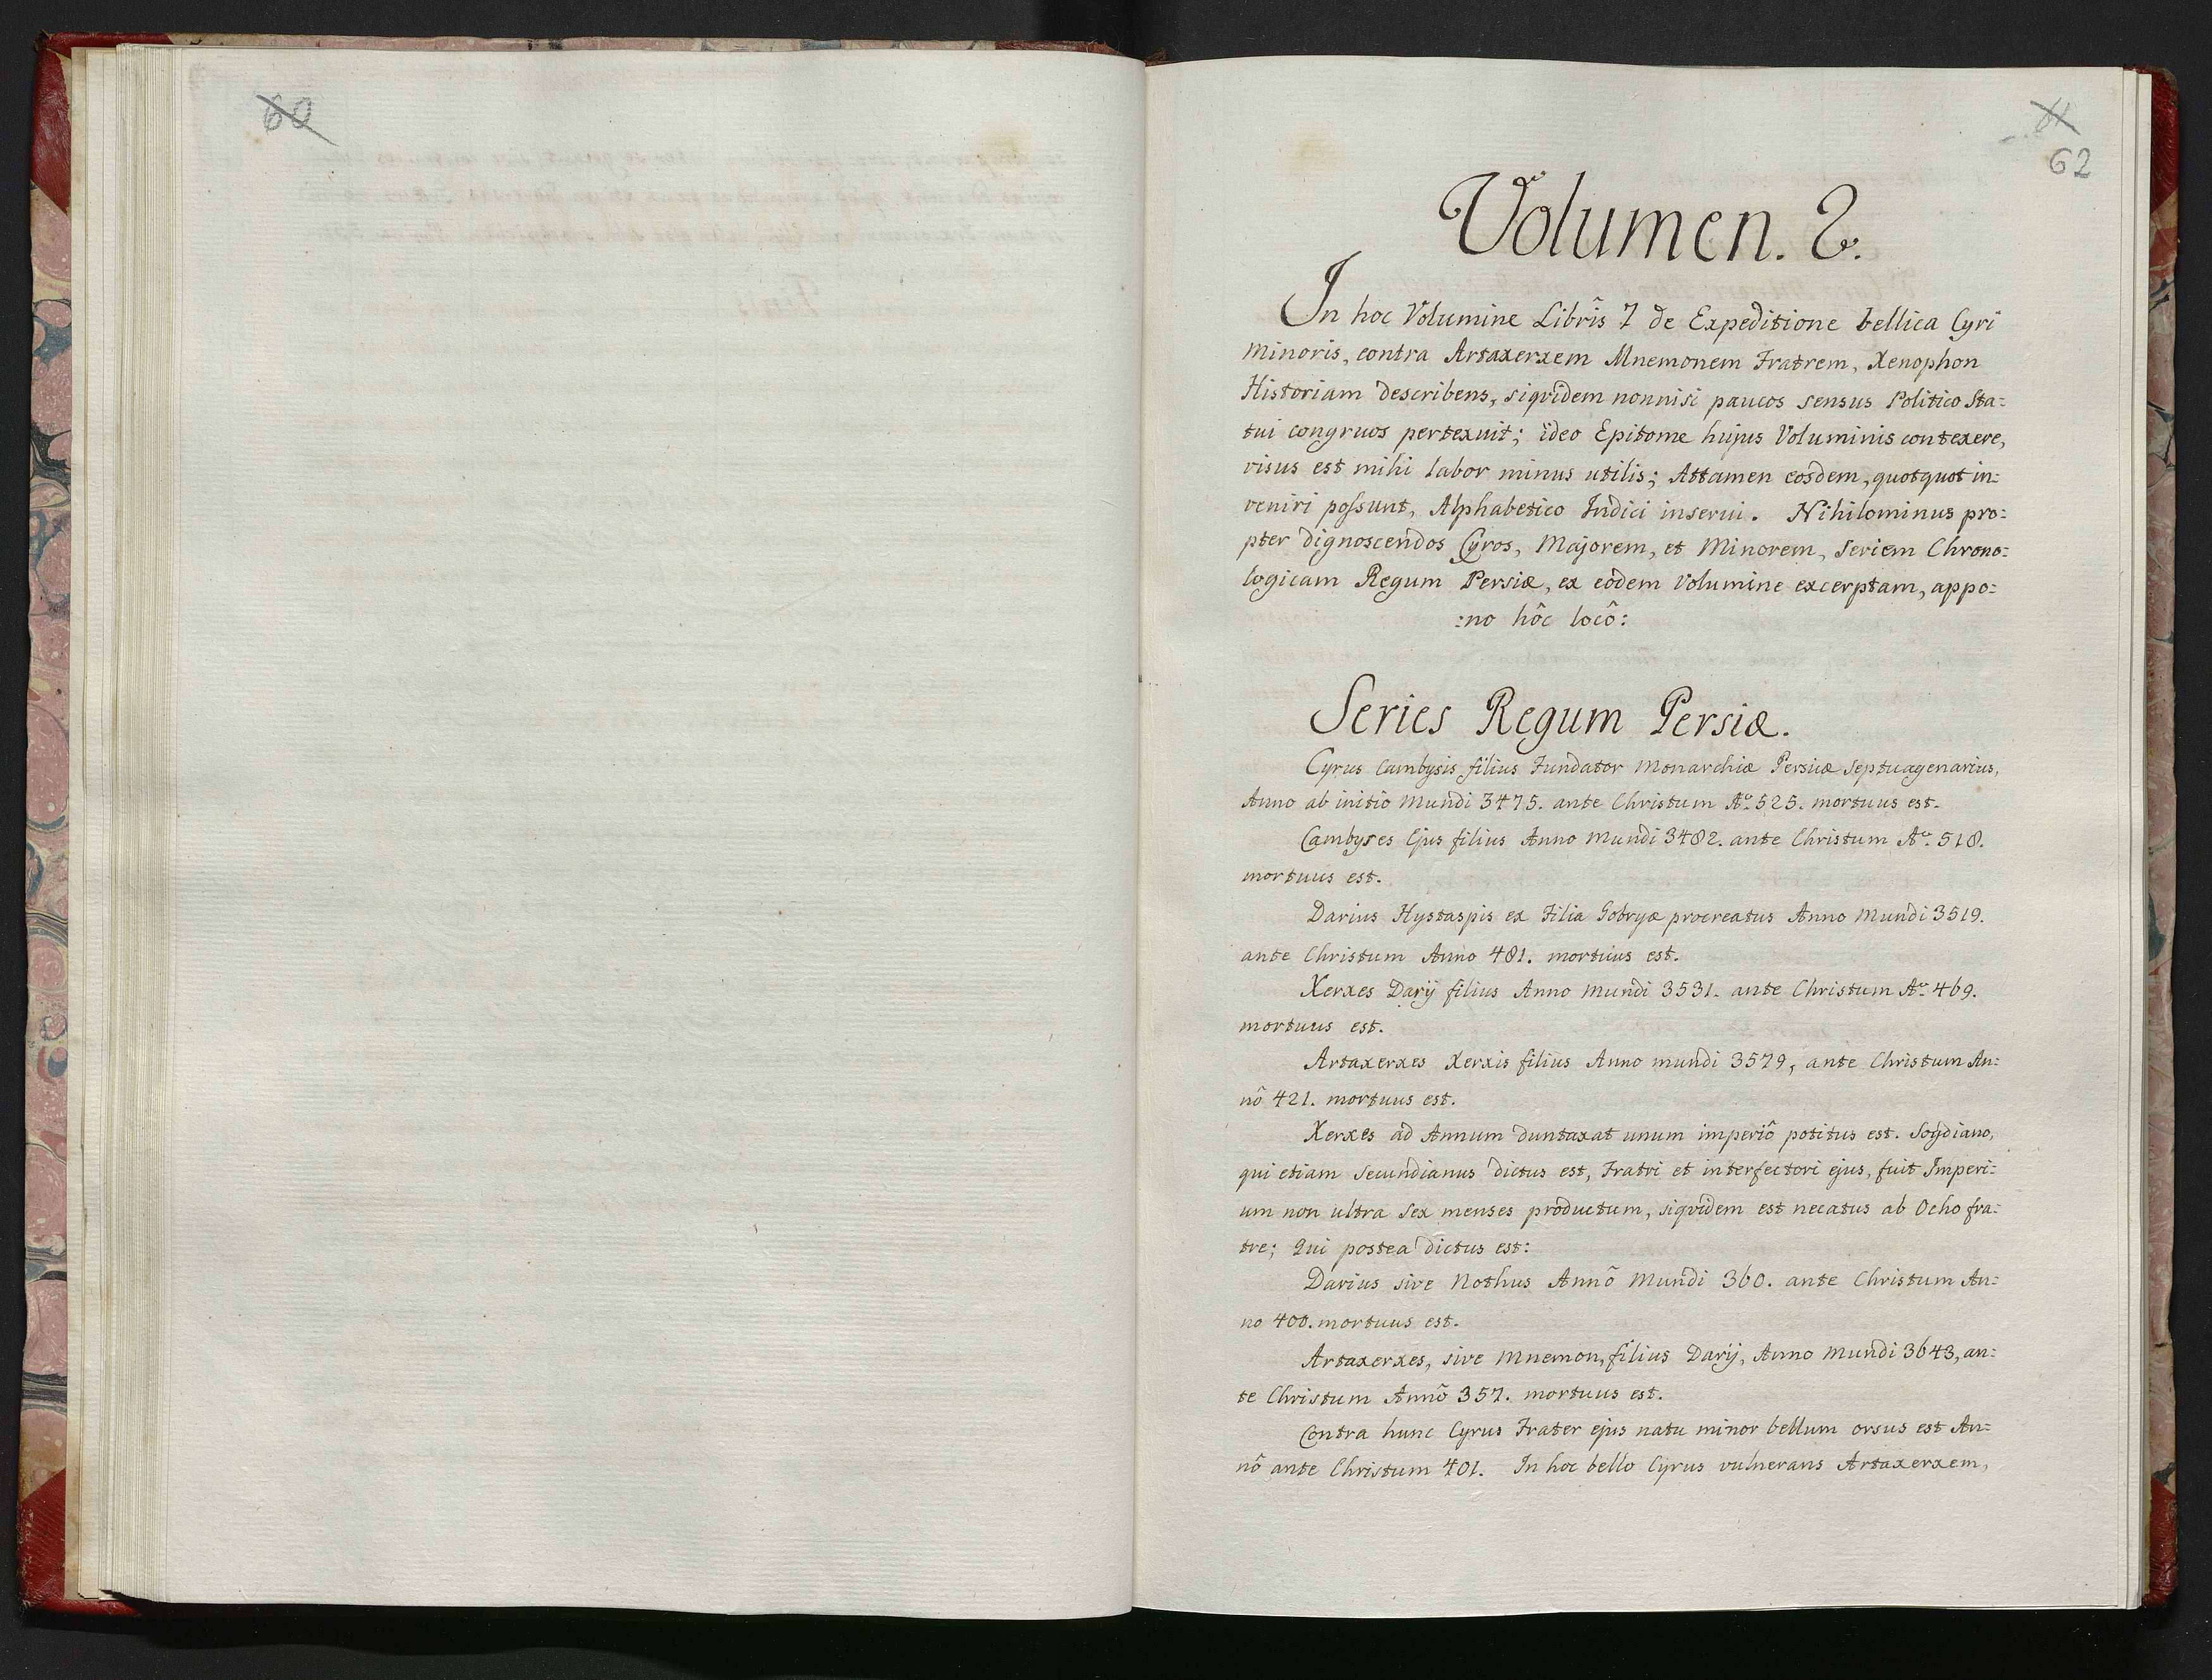 60
62
Volumen. 2.
In hoc Volumine Librîs 7 de Expeditione bellica Cyri
Minoris, contra Artaxerxem Mnemonem Fratrem, Xenophon
Historiam describens, siqvidem nonnisi paucos sensus Politico Sta=
tui congruos pertexuit; ideo Epitome hujus Voluminis contexere,
visus est mihi labor minus utilis; Attamen eosdem, quotquot in=
veniri possunt, Alphabetico Indici inserui. Nihilominus pro=
pter dignoscendos Cyros, Majorem, et Minorem, Seriem Chrono=
logicam Regum Persiæ, ex eodem Volumine excerptam, appo=
=no hôc locô:
Series Regum Persiæ.
Cyrus Cambysis filius Fundator Monarchiæ Persicæ septuagenarius,
Anno ab initio Mundi 3475. ante Christum Aº 525. mortuus est.
Cambyses Ejus filius Anno Mundi 3482. ante Christum Aº 518.
mortuus est.
Darius Hystaspis ex Filia Gobryæ procreatus Anno Mundi 3519.
ante Christum Anno 481. mortuus est.
Xerxes Darij filius Anno Mundi 3531. ante Christum Aº 469.
mortuus est.
Artaxerxes Xerxis filius Anno mundi 3579, ante Christum An=
nô 421. mortuus est.
Xerxes ad Annum duntaxat unum imperiô potitus est. Sogdiano,
qui etiam Secundianus dictus est, Fratri et interfectori ejus, fuit Imperi=
um non ultra sex menses productum, siqvidem est necatus ab Ocho fra=
tre; Qui postea dictus est:
Darius sive Nothus Annô Mundi 360. ante Christum An=
no 400. mortuus est.
Artaxerxes, sive Mnemon, filius Darij, Anno Mundi 3643, an=
te Christum Annô 357. mortuus est.
Contra hunc Cyrus Frater ejus natu minor bellum orsus est An=
nô ante Christum 401. In hoc bello Cyrus vulnerans Artaxerxem,